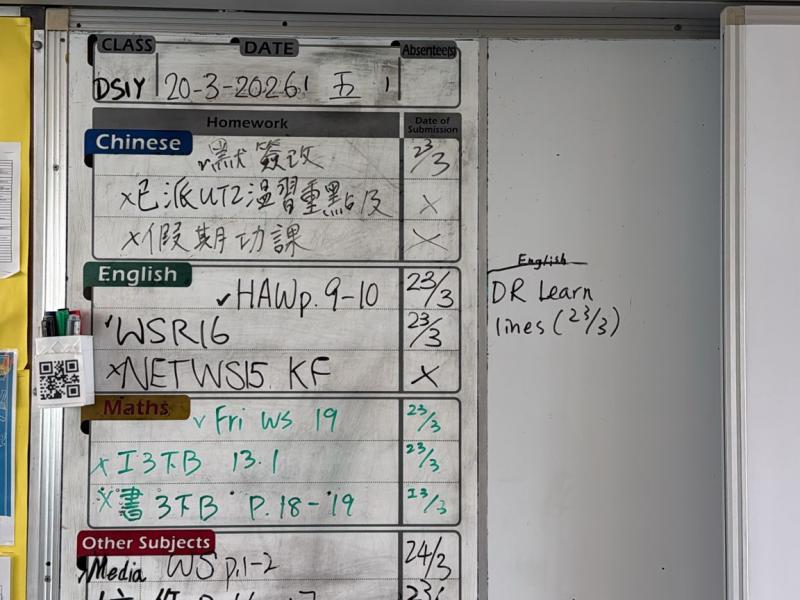 CLASS DATE Absentee(s)
DS1Y 20-3-2026 五 1
Homework Date of Submission
Chinese
✓默簽改 23/3
x已派UT2溫習重點及 x
x假期功課 x
English
✓HAWp. 9-10 23/3
✓WSR16 23/3
xNETWS15. KF x
Maths
✓Fri WS 19 23/3
x工3下B 13.1 23/3
x書3下B P.18-19 23/3
Other Subjects
Media WS p.1-2 24/3
English
DR Learn
lines (23/3)